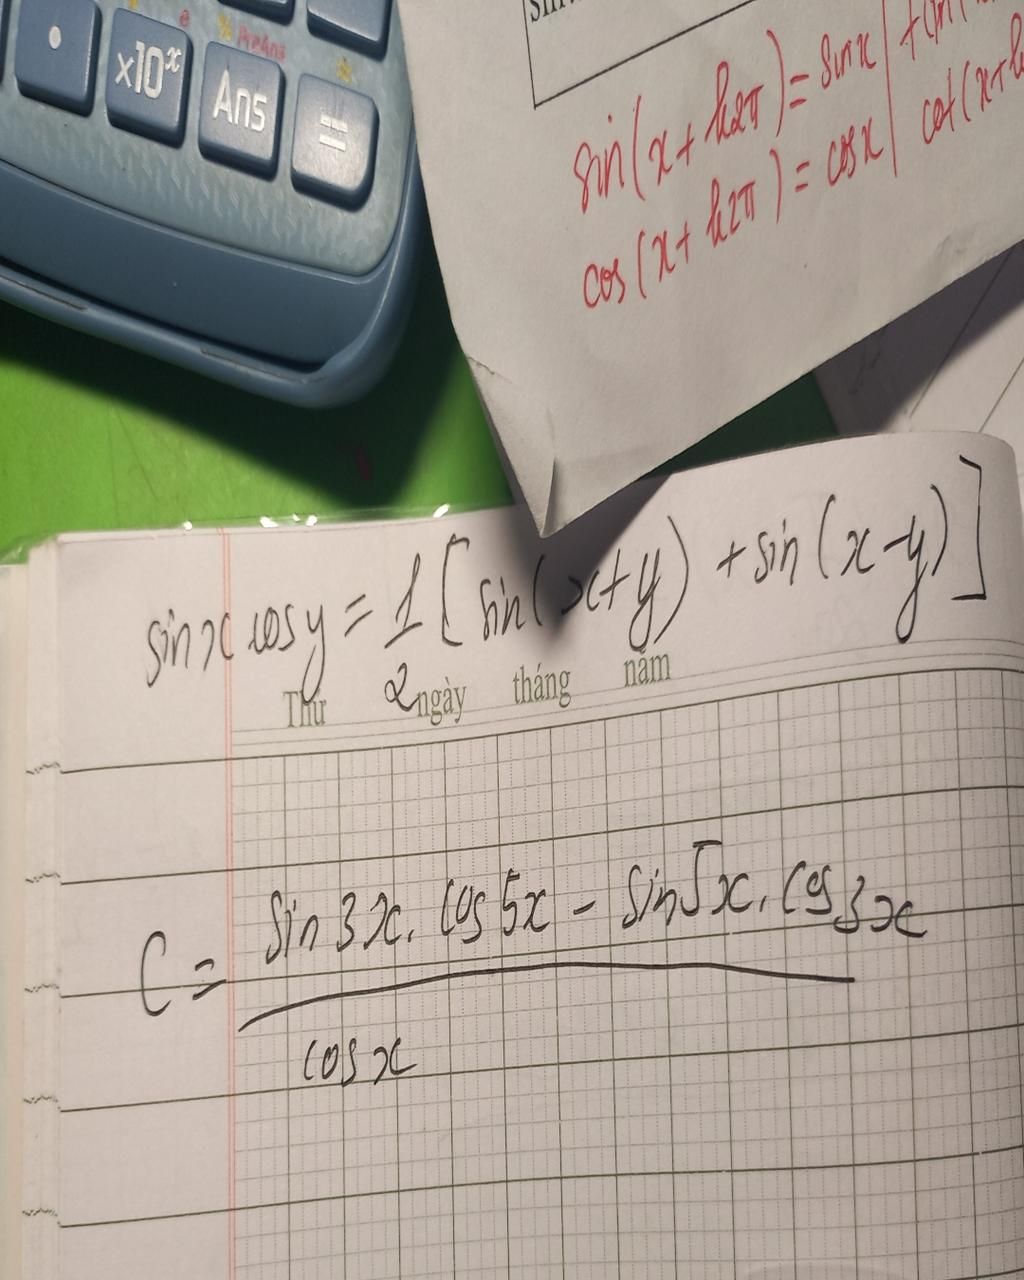 ×10ˣ
Ans
=
% PreAns
sin(x + k2π) = sin x
cos(x + k2π) = cos x
cot(x+k
sin x cos y = 1/2 [sin(x+y) + sin(x-y)]
Thứ ngày tháng năm
C = (sin 3x. cos 5x - sin 5x. cos 3x) / cos x